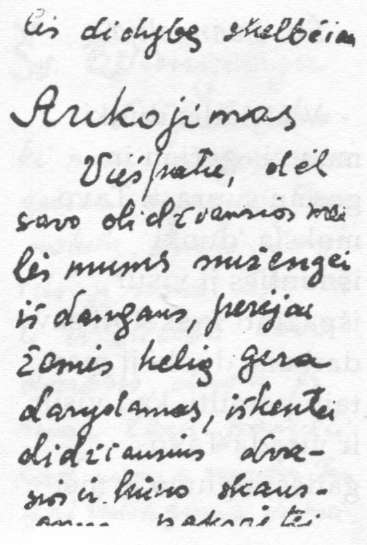 didybę skelbėiau
Aukojimas
Viešpatie, dėl
savo didžiausios mei
lės mums nužengei
iš dangaus, perėjai
žemės kelią gera
darydamas, iškentėi
didžiausius dva-
sios ir kūno skaus-